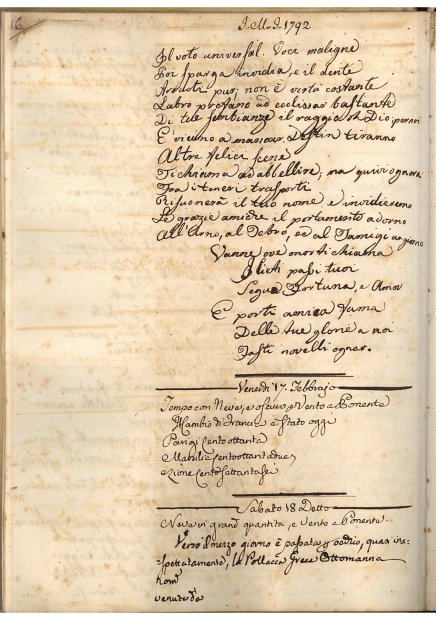 16
J.M.J. 1792
Il voto universal. Voci maligne
Poi sparga invidia, e il dente
Arruoti pur, non è virtù costante
Labro profano ad ecclissar bastante
Di tue sembianze il raggio oh Dio, per noi
È vicino a mancar. Destin tiranno
Altre felici scene
Ti chiama ad abbellire, ma quivi ognora
Fra i teneri trasporti
Risuonerà il tuo nome, e invidieremo
Le grazie amiche il portamento adorno
All'Arno, al Tebro, ed al Tamigi un giorno
Vanne ove onor ti chiama
Lieti passi tuoi
Segua Fortuna, e Amor
E porti amica Fama
Delle tue glorie a noi
Fasti novelli ognor.
Venerdì 17. Febbrajo
Tempo con Neve, e oscuro, e Vento a Ponente
Il Cambio di Francia è stato oggi
Parigi Cento ottanta
Marsilia Cento ottantadue
e Lione Cento Settantasei
Sabato 18 Detto
Neve in grand quantità, e Vento a Ponente.
Verso il mezzo giorno è passata, quasi ine-
-spettatamente, la Pollacca Greca Ottomanna
Nom
venuta da